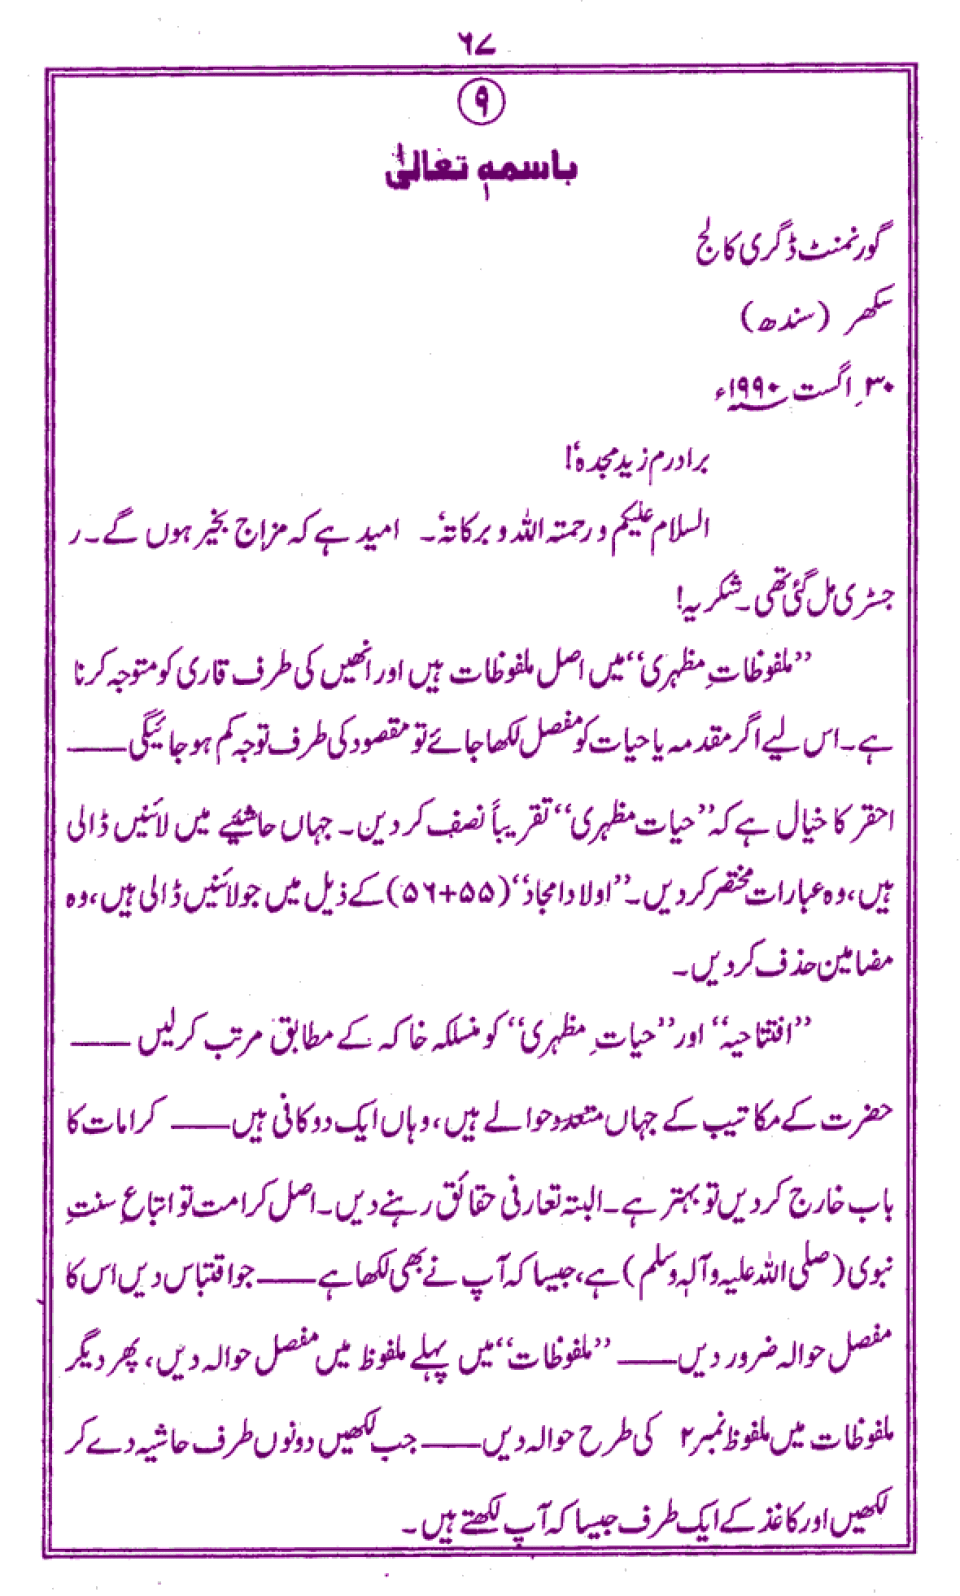 ۶۷
۹
باسمہٖ تعالیٰ
گورنمنٹ ڈگری کالج
سکھر (سندھ)
۳۰ اگست ۱۹۹۰ء
برادرم زید مجدہٗ!
السلام علیکم ورحمتہ اللہ وبرکاتہٗ۔ امید ہے کہ مزاج بخیر ہوں گے۔ر
جسٹری مل گئی تھی۔شکریہ!
”ملفوظاتِ مظہری“ میں اصل ملفوظات ہیں اور انھیں کی طرف قاری کو متوجہ کرنا
ہے۔اس لیے اگر مقدمہ یا حیات کو مفصل لکھا جائے تو مقصود کی طرف توجہ کم ہو جائیگی ——
احقر کا خیال ہے کہ ”حیات مظہری“ تقریباً نصف کر دین۔ جہاں حاشیئے میں لائنیں ڈالی
ہیں، وہ عبارات مختصر کر دیں۔ ”اولاد امجاد“ (۵۵+۵۶) کے ذیل میں جو لائنیں ڈالی ہیں، وہ
مضامین حذف کر دیں۔
”افتتاحیہ“ اور ”حیاتِ مظہری“ کو منسلکہ خاکہ کے مطابق مرتب کر لیں ——
حضرت کے مکاتیب کے جہاں متعدد حوالے ہیں، وہاں ایک دو کافی ہیں —— کرامات کا
باب خارج کر دیں تو بہتر ہے۔ البتہ تعارفی حقائق رہنے دیں۔اصل کرامت تو اتباعِ سنتِ
نبوی (صلی اللہ علیہ وآلہٖ وسلم) ہے، جیسا کہ آپ نے بھی لکھا ہے —— جو اقتباس دیں اس کا
مفصل حوالہ ضرور دیں —— ”ملفوظات“ میں پہلے ملفوظ میں مفصل حوالہ دیں، پھر دیگر
ملفوظات میں ملفوظ نمبر ۲ کی طرح حوالہ دیں —— جب لکھیں دونوں طرف حاشیہ دے کر
لکھیں اور کاغذ کے ایک طرف جیسا کہ آپ لکھتے ہیں۔